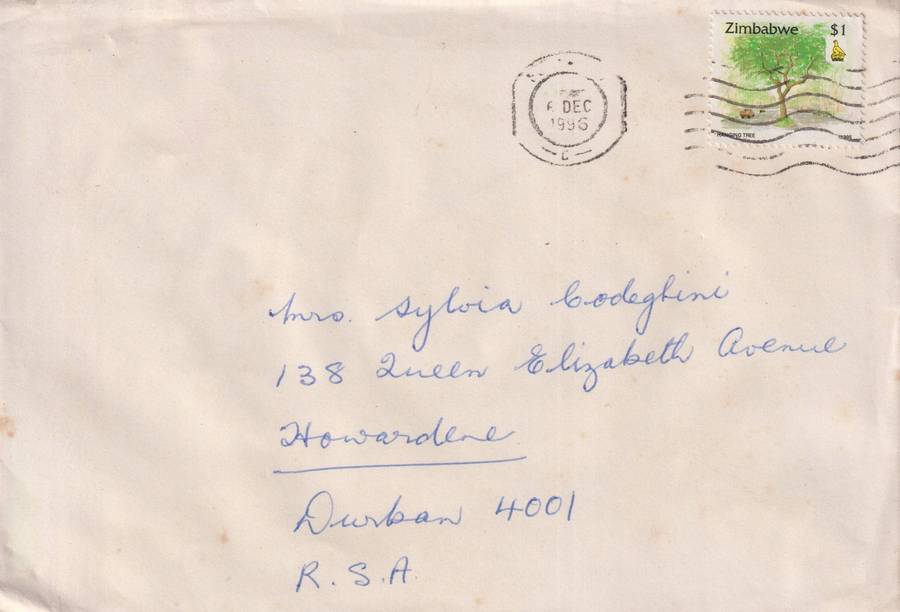 Zimbabwe $1
HANGING TREE 1995
6 DEC
1996
C
Mrs. Sylvia Codeghini
138 Queen Elizabeth Avenue
Howardene
Durban 4001
R.S.A.